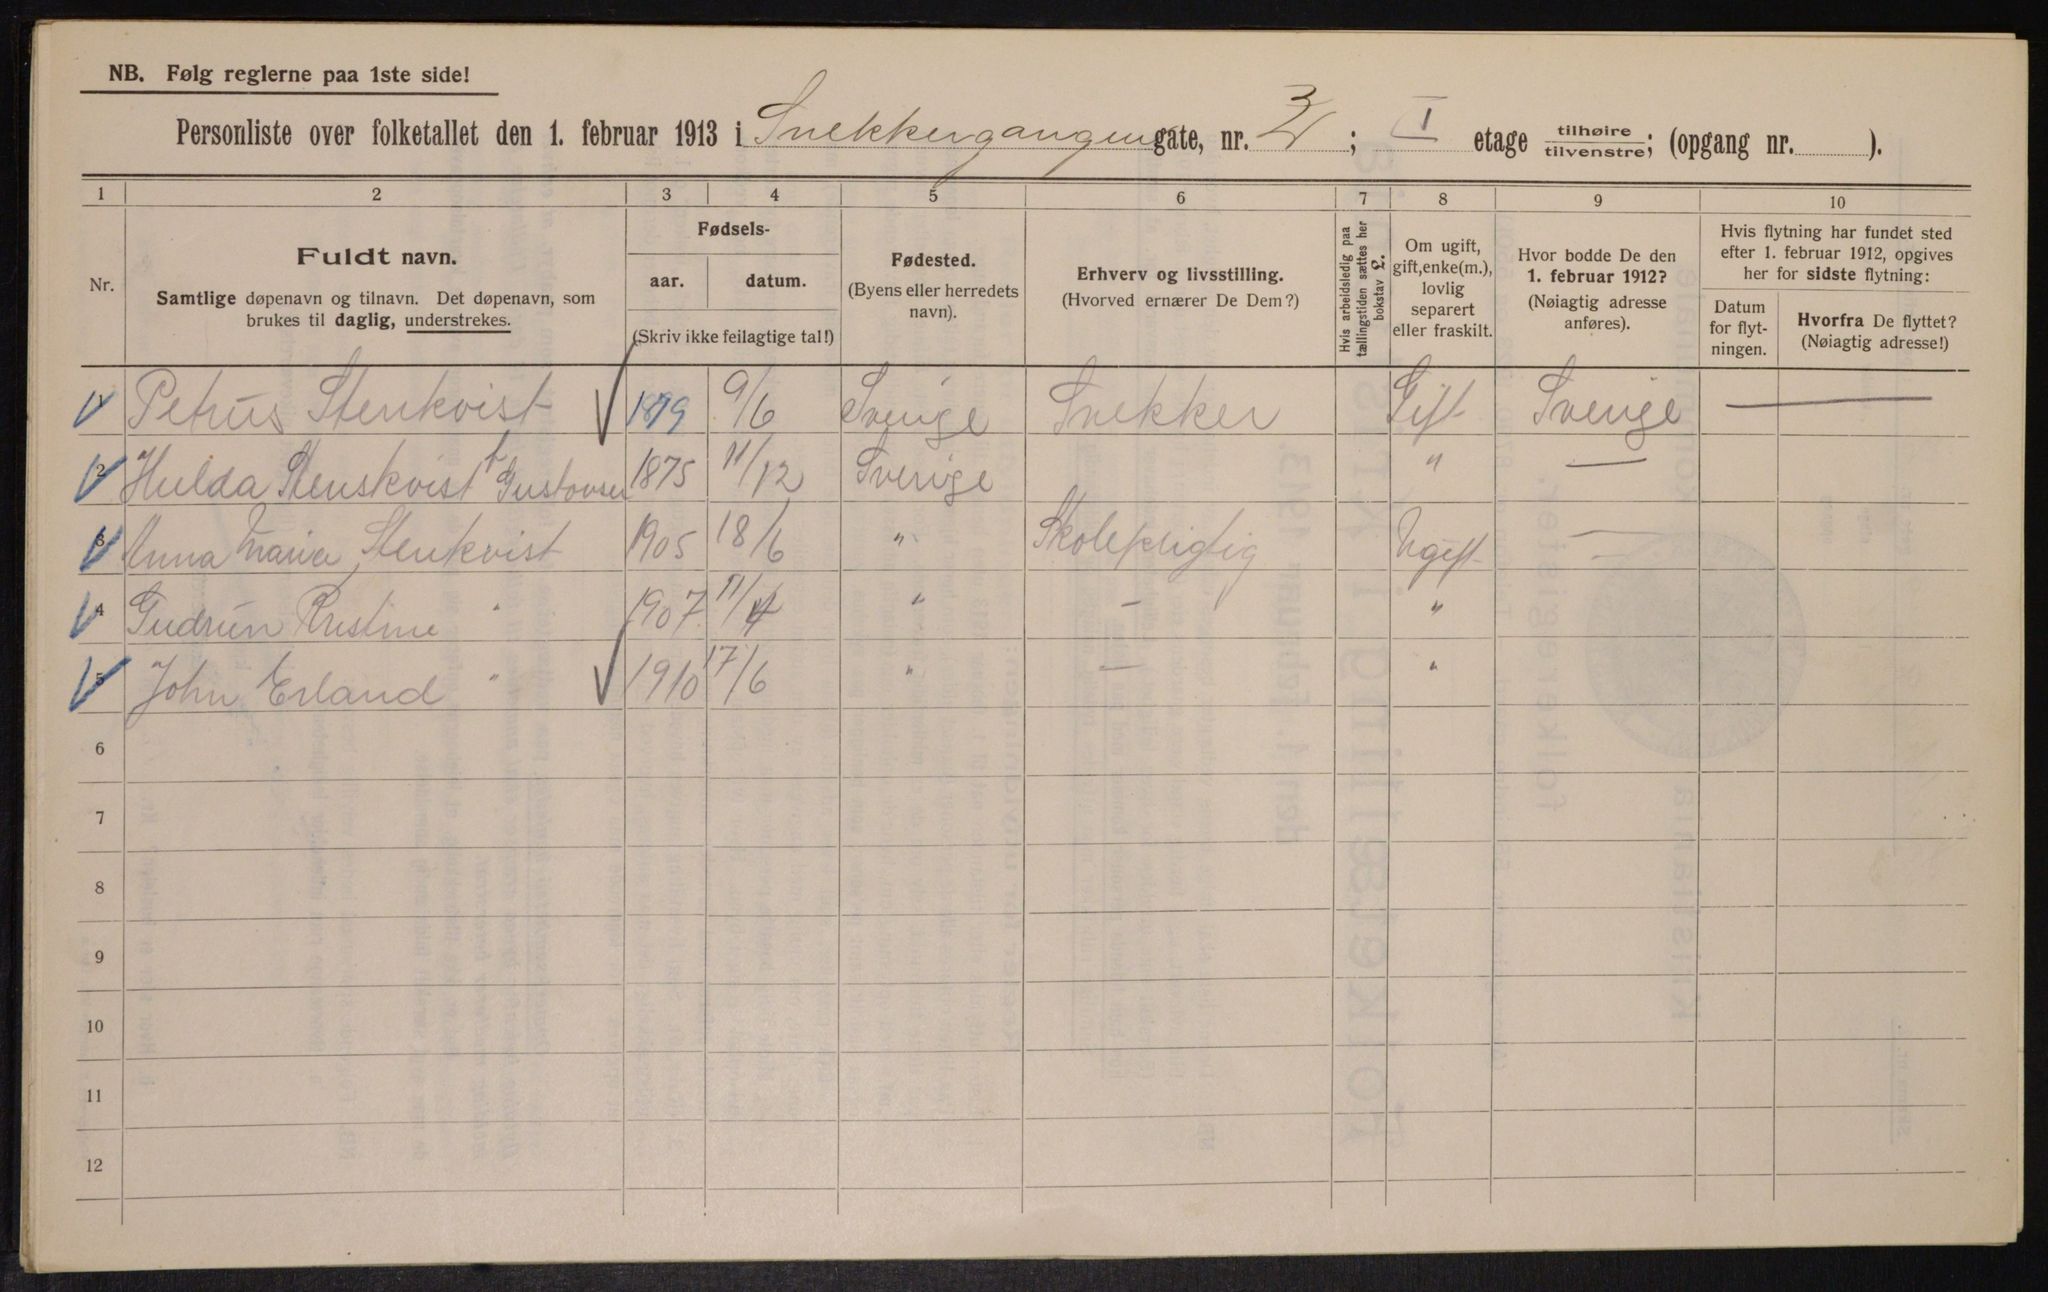 NB. Følg reglerne paa 1ste side!
Personliste over folketallet den 1. februar 1913 i Snekkergangen gate, nr. 3 ; I etage tilhøire/tilvenstre; (opgang nr. ).
1 2 3 4 5 6 7 8 9 10
Nr.
Fuldt navn.
Samtlige døpenavn og tilnavn. Det døpenavn, som
brukes til daglig, understrekes.
Fødsels-
aar. datum.
(Skriv ikke feilagtige tal!)
Fødested.
(Byens eller herredets
navn).
Erhverv og livsstilling.
(Hvorved ernærer De Dem?)
Hvis arbeidsledig paa
tællingstiden sættes her
bokstav L.
Om ugift,
gift, enke(m.),
lovlig
separert
eller fraskilt.
Hvor bodde De den
1. februar 1912?
(Nøiagtig adresse
anføres).
Hvis flytning har fundet sted
efter 1. februar 1912, opgives
her for sidste flytning:
Datum
for flyt-
ningen.
Hvorfra De flyttet?
(Nøiagtig adresse!)
1 Petrus Stenkvist 1879 9/6 Sverige Snekker Gift Sverige —
2 Hulda Stenskvist f. Gustovsen 1875 11/12 Sverige " —
3 Anna Maria Stenkvist 1905 18/6 " Skolepligtig Ugift —
4 Gudrun Kristine " 1907 11/4 " — "
5 John Erland " 1910 17/6 " — "
6
7
8
9
10
11
12